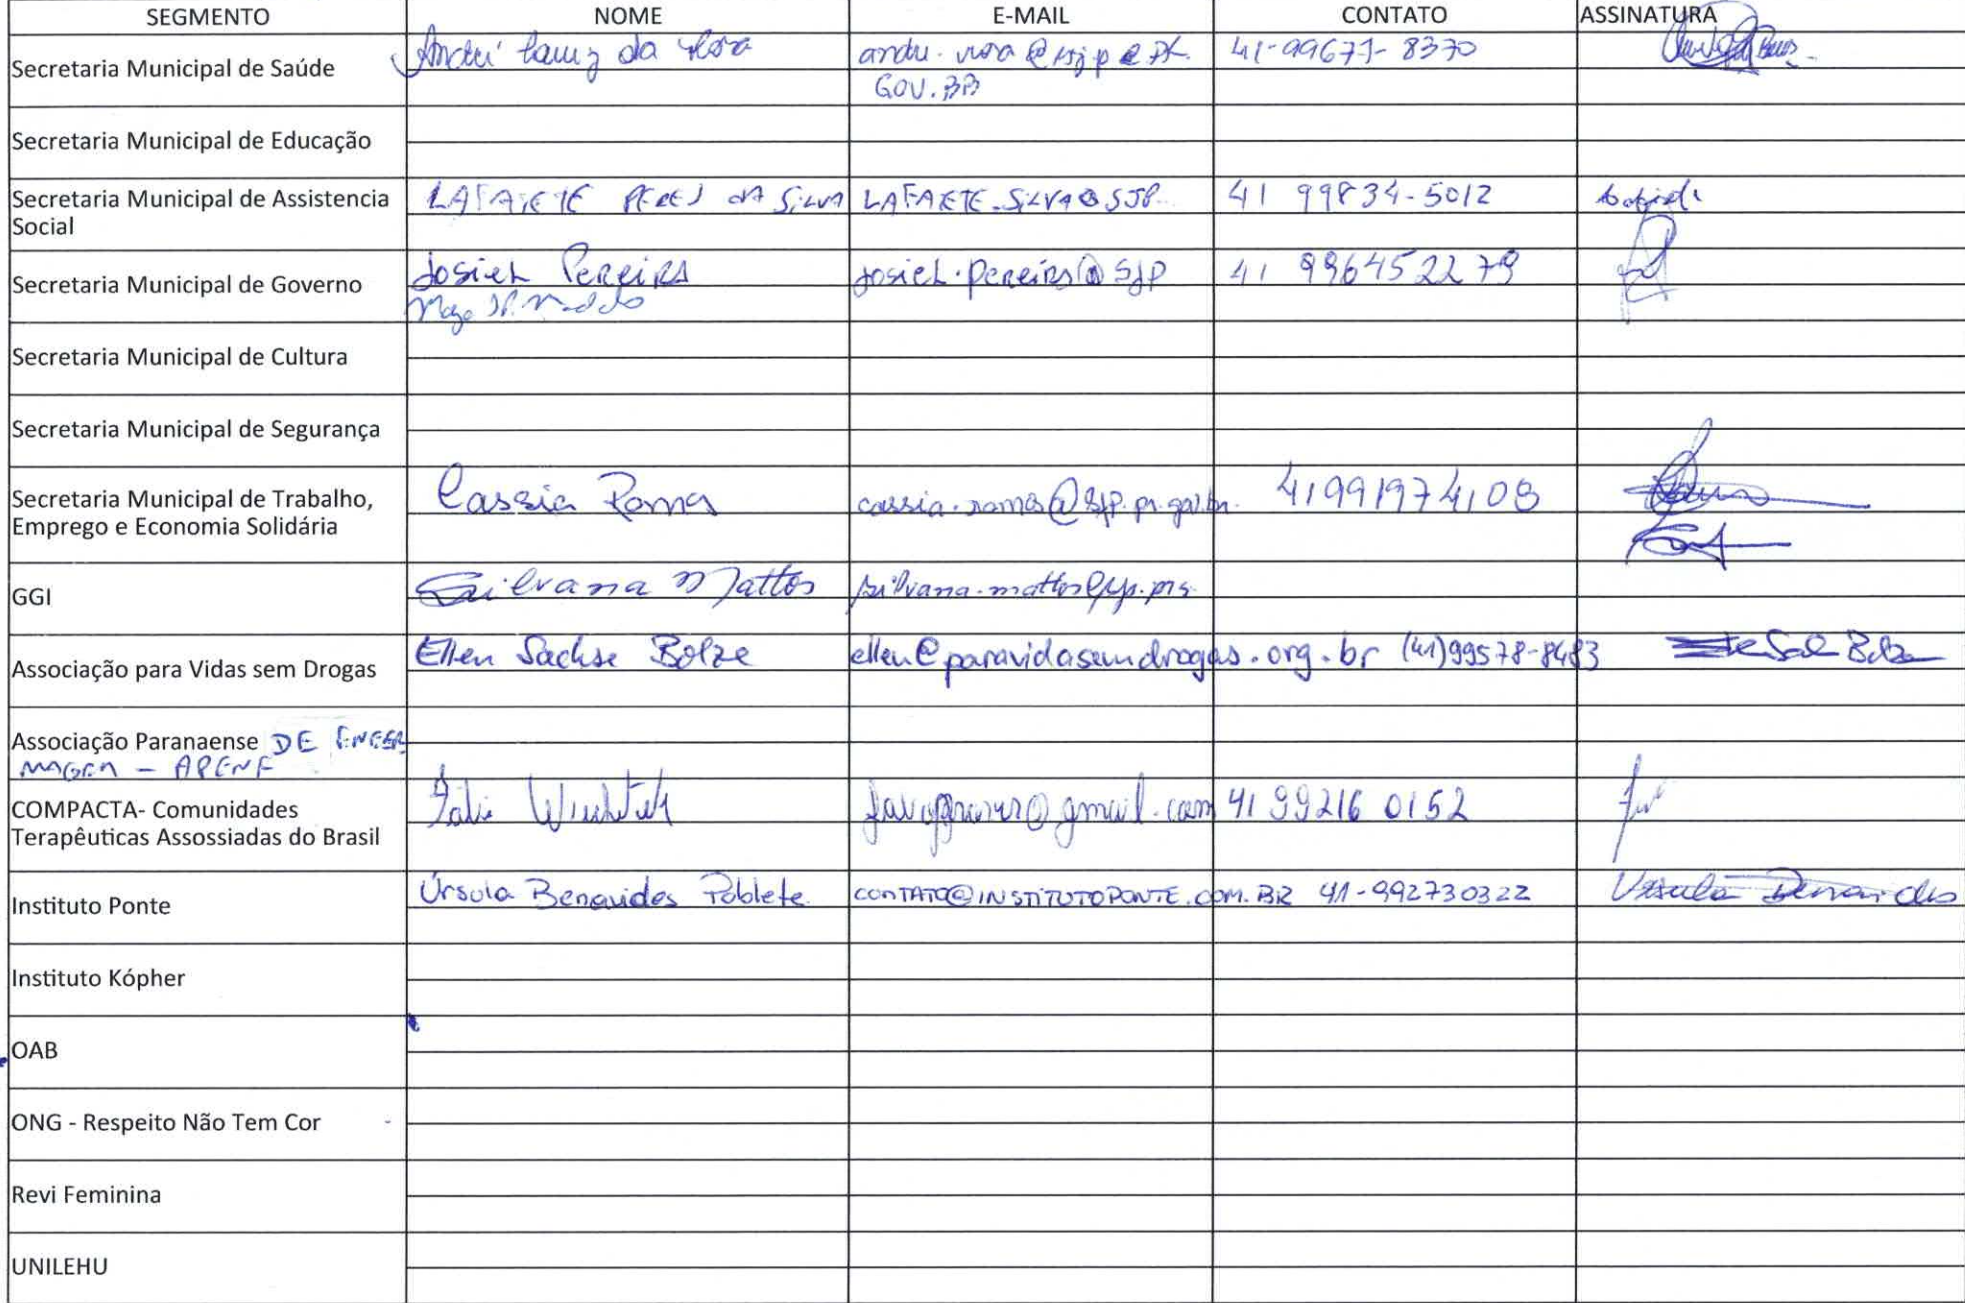 SEGMENTO NOME E-MAIL CONTATO ASSINATURA
Secretaria Municipal de Saúde André Luiz da Rosa 41-99671-8370
GOV.BR
Secretaria Municipal de Educação
Secretaria Municipal de Assistencia LAFAIETE PERES DA SILVA LAFAETE.SILVA@SJP 41 99834-5012
Social
Secretaria Municipal de Governo Josiel Pereira josiel.pereira@SJP 41 996452279
Secretaria Municipal de Cultura
Secretaria Municipal de Segurança
Secretaria Municipal de Trabalho, Cassia Ramos cassia.ramos@sjp.pr.gov.br. 41991974108
Emprego e Economia Solidária
GGI Silvana Mattos
Associação para Vidas sem Drogas Ellen Sachse Bolze ellen@paravidasemdrogas.org.br (41)99578-8483
Associação Paranaense DE ENFER
MAGEM - APENF
COMPACTA- Comunidades 41 99216 0152
Terapêuticas Assossiadas do Brasil
Instituto Ponte Úrsula Benavides Poblete CONTATO@INSTITUTOPONTE.COM.BR 41-992730322 Ursula Benavides
Instituto Kópher
OAB
ONG - Respeito Não Tem Cor
Revi Feminina
UNILEHU